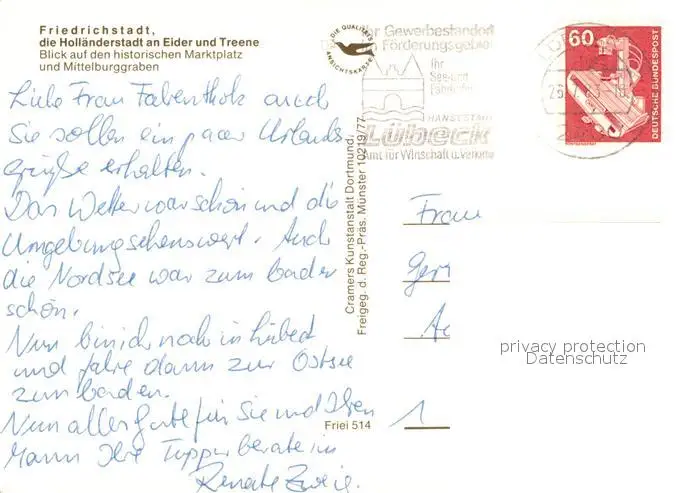 Friedrichstadt,
die Holländerstadt an Eider und Treene
Blick auf den historischen Marktplatz
und Mittelburggraben
DIE QUALITÄTS
ANSICHTSKARTE
Gewerbestandort
Förderungsgebiet
Ihr
See- und
HANSESTADT
Lübeck
Amt für Wirtschaft u. Verkehr
60
DEUTSCHE BUNDESPOST
Liebe Frau auch
Sie sollen ein paar Urlaubs-
grüße erhalten.
Das Wetter war schön und die
Umgebung sehenswert. Auch
die Nordsee war zum baden
schön.
Nun bin ich noch in Lübeck
und fahre dann zur Ostsee
zum baden.
Nun alles gute für Sie und Ihren
Mann Ihre Tupperberaterin
Renate
Cramers Kunstanstalt Dortmund,
Freigeg. d. Reg.-Präs. Münster 10219/77
Friei 514
Frau
Ger
1
privacy protection
Datenschutz